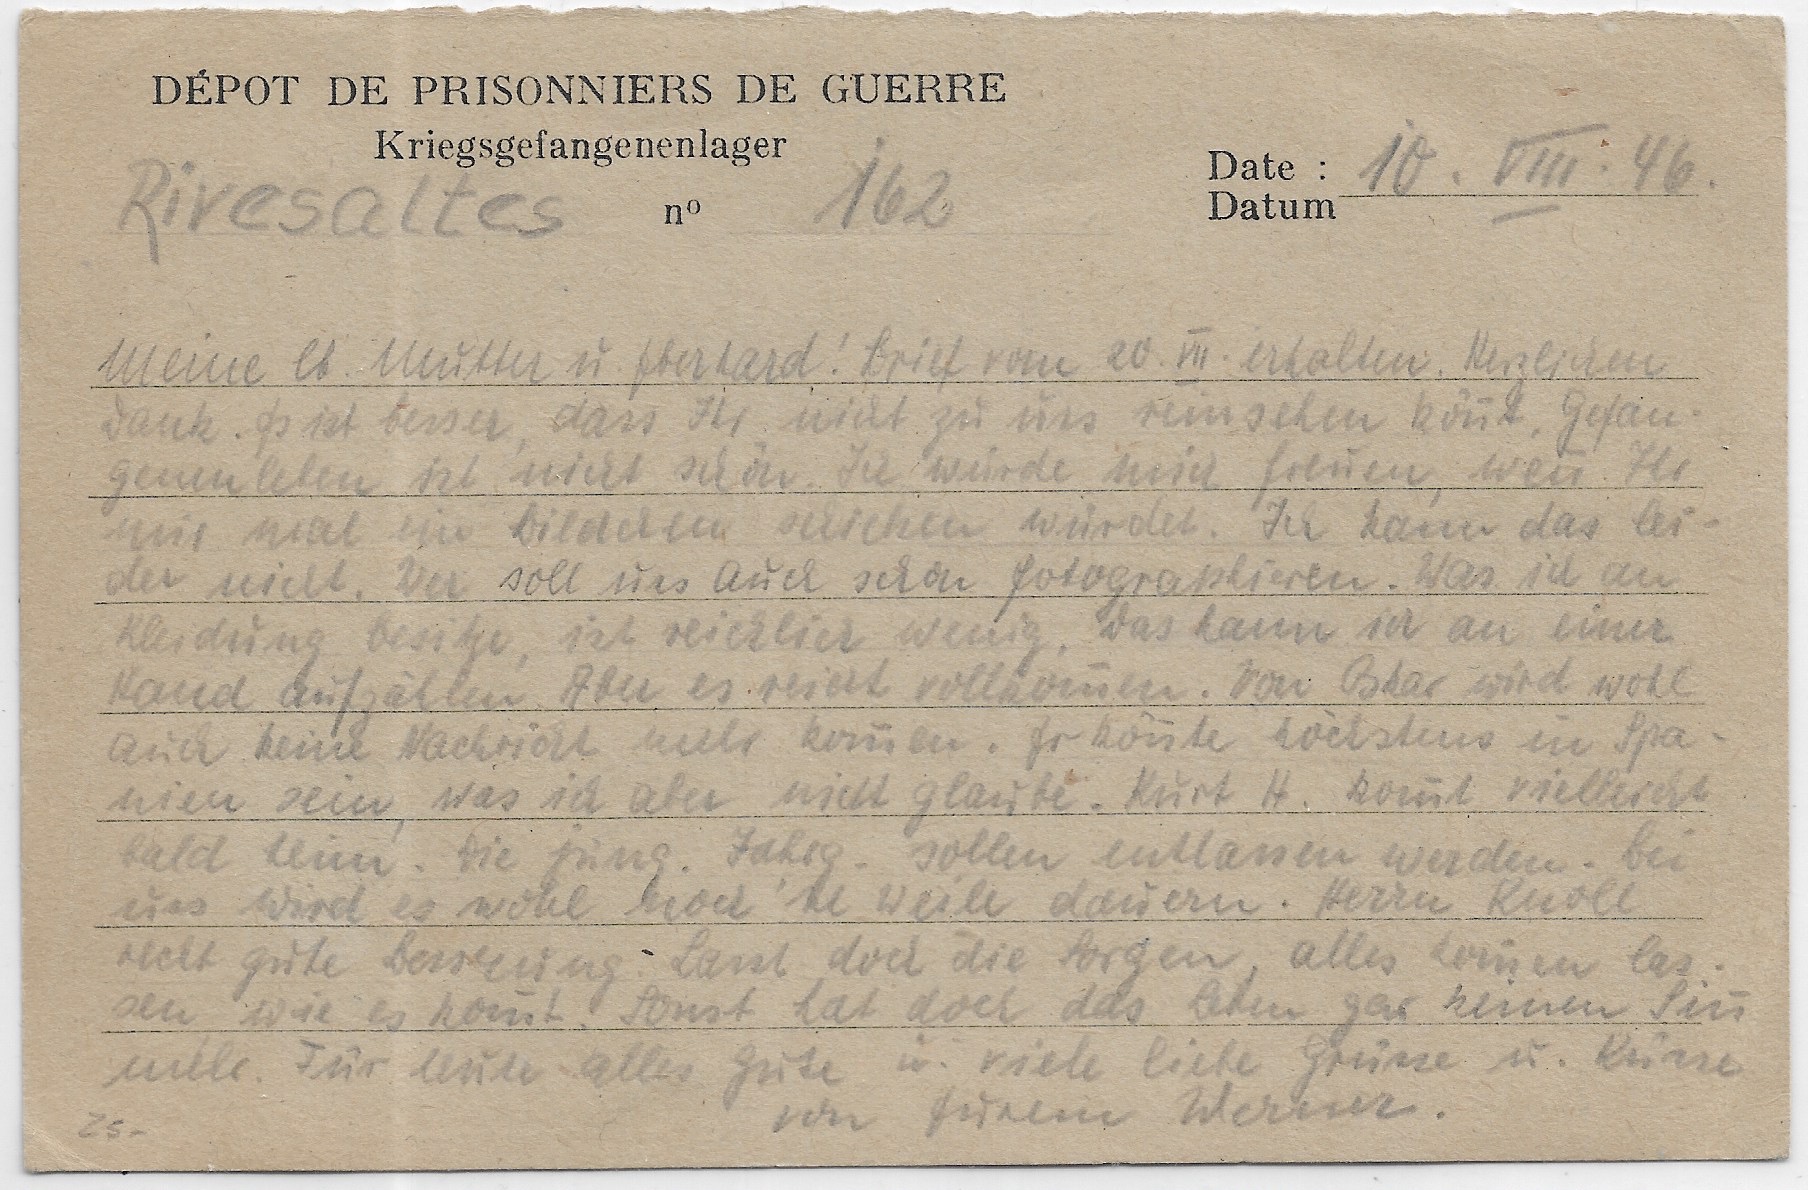 DÉPOT DE PRISONNIERS DE GUERRE
Kriegsgefangenenlager
Rivesaltes nº 162
Date : 10. VIII. 46.
Datum
Meine lb. Mutter u. Eberhard! Brief vom 20. VII. erhalten. Herzlichen
Dank. Es ist besser, dass Ihr nicht zu uns reinsehen kön̄t. Gefan-
genenleben ist nicht schön. Ich würde mich freuen, wen̄ Ihr
mir mal ein Bildchen schicken würdet. Ich kann das lei-
der nicht. Wer soll uns auch schon fotographieren. Was ich an
Kleidung besitze, ist reichlich wenig. Das kann ich an einer
Hand aufzählen. Aber es reicht vollkom̄en. Von Oskar wird wohl
auch keine Nachricht mehr kom̄en. Er kön̄te höchstens in Spa-
nien sein, was ich aber nicht glaube. Kurt H. kom̄t vielleicht
bald heim. Die jüng. Jahrg. sollen entlassen werden. Bei
uns wird es wohl noch 'ne Weile dauern. Herrn Knoll
recht gute Besserung. Lasst doch die Sorgen, alles kom̄en las-
sen wie es kom̄t. Sonst hat doch das Leben gar keinen Sin̄
mehr. Für heute alles Gute u. viele liebe Grüsse u. Küsse
von Eurem Werner.
25-